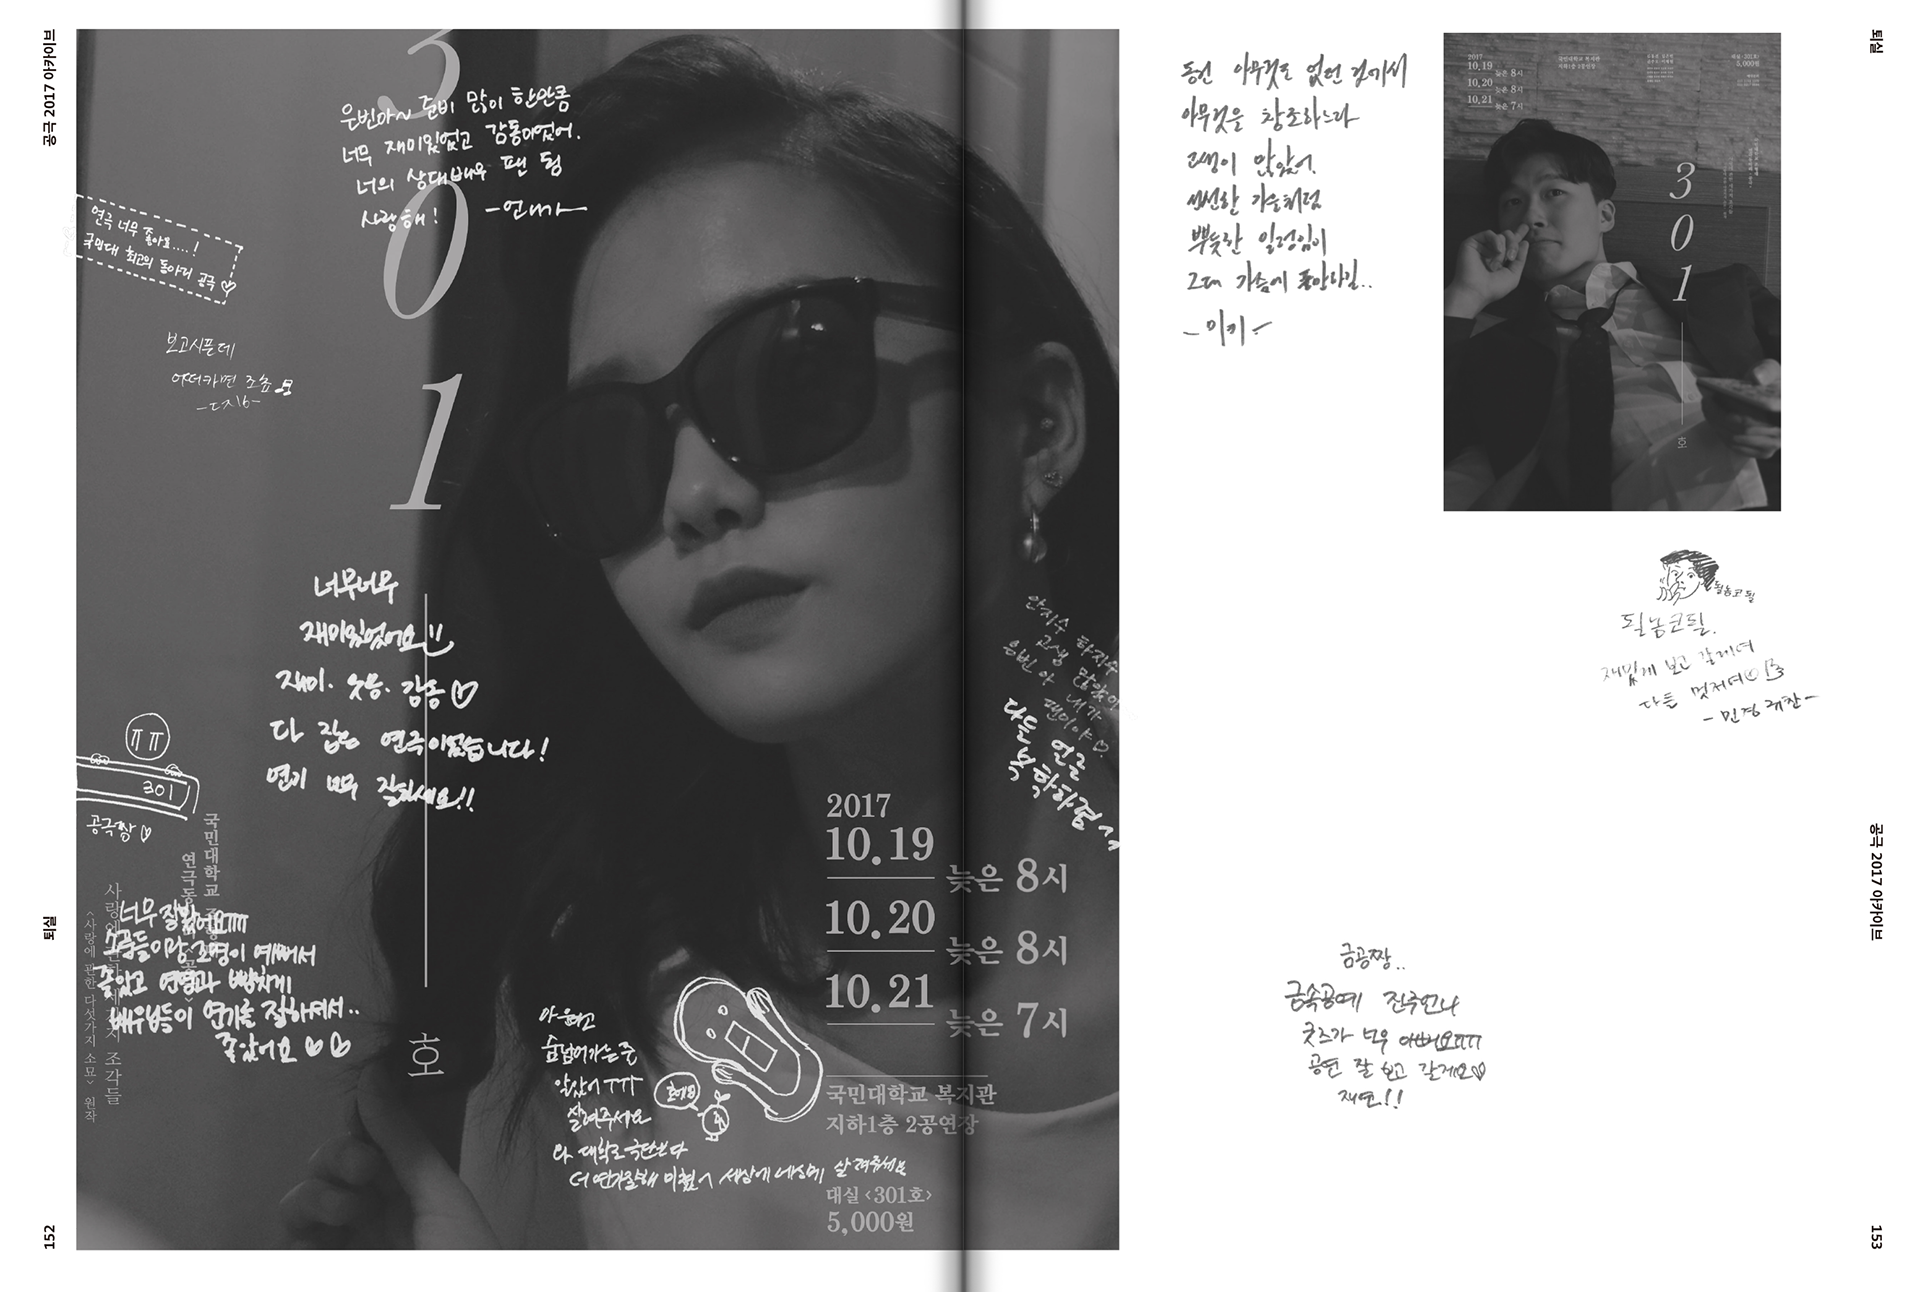 공극 2017 아카이브
퇴실
152
301
호
은빈아~ 준비 많이 한만큼
너무 재미있었고 감동이었어.
너의 상대배우 팬 됨
사랑해! -언니가-
연극 너무 좋아요....!
국민대 최고의 동아리 공극♡
보고시픈데
어떠카면 조음
너무너무
재미있었어요!!
재미. 웃음. 감동♡
다 잡은 연극이었습니다!
연기 너무 잘하세요!!
ㅠㅠ
301
공극짱♡
국민대학교
연극동
사랑에 관한 세 가지 조각들
<사랑에 관한 다섯가지 소묘> 원작
너무 잘봤어요ㅠㅠㅠ
소품들이랑 조명이 예뻐서
좋았고 연출과
배우님들이 연기를 잘하셔서..
좋았어요♡♡
숨넘어가는 줄
알았어ㅜㅜ
살려주세요
와 대학로극단보다
더 연기잘해 미쳤 세상에 세상에 살려주세요
안지수 하지수
고생 많았어
은빈아 내가
팬이야♡
다들 얼른
복학하렴~
2017
10.19 늦은 8시
10.20 늦은 8시
10.21 늦은 7시
국민대학교 복지관
지하1층 2공연장
대실 <301호>
5,000원
아무것도 없던 것에서
아무것을 창조하느라
고생이 많았어.
선선한 가을처럼
뿌듯한 일렁임이
그대 가슴에
-미키-
2017
10.19 늦은 8시
10.20 늦은 8시
10.21 늦은 7시
국민대학교 복지관
지하1층 2공연장
5,000원
301
호
필놈코필
필놈코필.
재밌게 보고 갈게여
다들 멋져여
금공짱..
금속공예 진주언니
굿즈가 너무 이뻐요ㅠㅠㅠ
공연 잘 보고 갈게요♡
재연!!
퇴실
공극 2017 아카이브
153